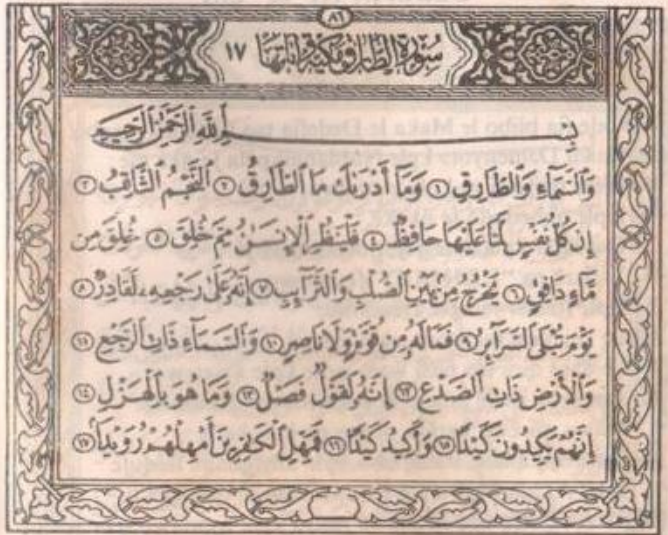 ٨٦
سُورَةُ الطَّارِقِ مَكِّيَّةٌ وَآيَاتُهَا ١٧
بِسْمِ ٱللَّهِ ٱلرَّحْمَٰنِ ٱلرَّحِيمِ
وَٱلسَّمَآءِ وَٱلطَّارِقِ ١ وَمَآ أَدْرَىٰكَ مَا ٱلطَّارِقُ ٢ ٱلنَّجْمُ ٱلثَّاقِبُ ٣
إِن كُلُّ نَفْسٍ لَّمَّا عَلَيْهَا حَافِظٌ ٤ فَلْيَنظُرِ ٱلْإِنسَٰنُ مِمَّ خُلِقَ ٥ خُلِقَ مِن
مَّآءٍ دَافِقٍ ٦ يَخْرُجُ مِنۢ بَيْنِ ٱلصُّلْبِ وَٱلتَّرَآئِبِ ٧ إِنَّهُۥ عَلَىٰ رَجْعِهِۦ لَقَادِرٌ ٨
يَوْمَ تُبْلَى ٱلسَّرَآئِرُ ٩ فَمَا لَهُۥ مِن قُوَّةٍ وَلَا نَاصِرٍ ١٠ وَٱلسَّمَآءِ ذَاتِ ٱلرَّجْعِ ١١
وَٱلْأَرْضِ ذَاتِ ٱلصَّدْعِ ١٢ إِنَّهُۥ لَقَوْلٌ فَصْلٌ ١٣ وَمَا هُوَ بِٱلْهَزْلِ ١٤
إِنَّهُمْ يَكِيدُونَ كَيْدًا ١٥ وَأَكِيدُ كَيْدًا ١٦ فَمَهِّلِ ٱلْكَٰفِرِينَ أَمْهِلْهُمْ رُوَيْدًۢا ١٧